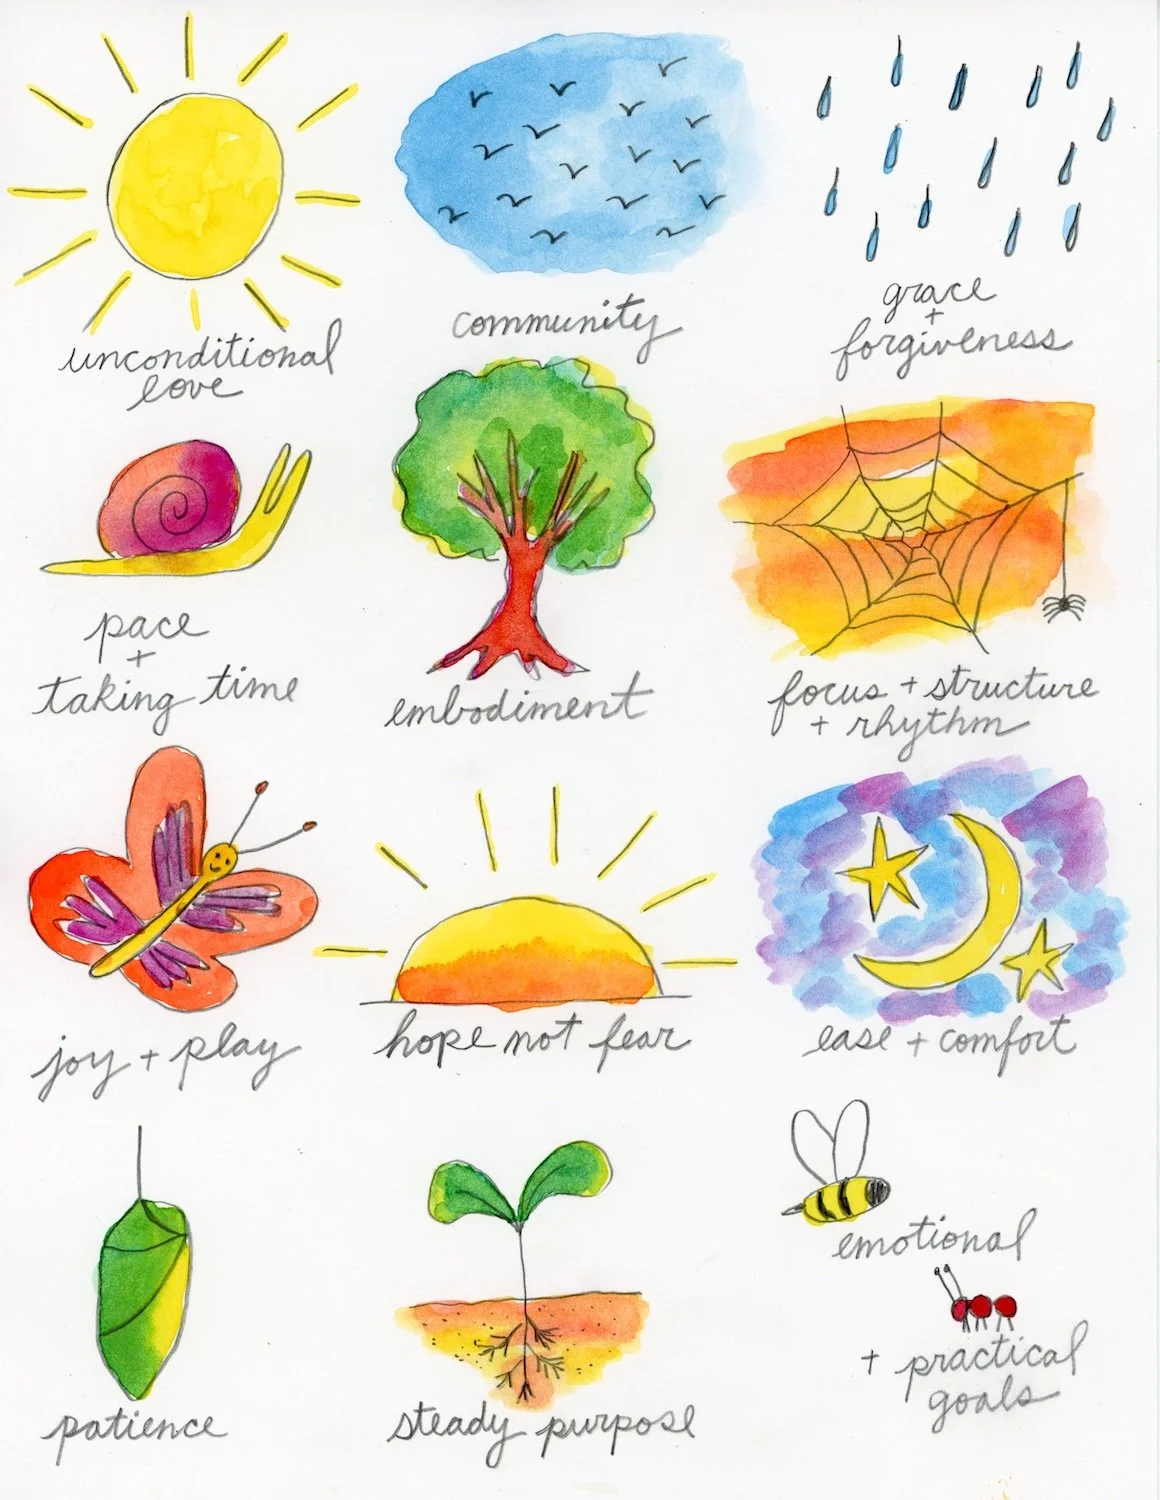 unconditional
love
community
grace
+
forgiveness
pace
+
taking time
embodiment
focus + structure
+ rhythm
joy + play
hope not fear
ease + comfort
patience
steady purpose
emotional
+ practical
goals